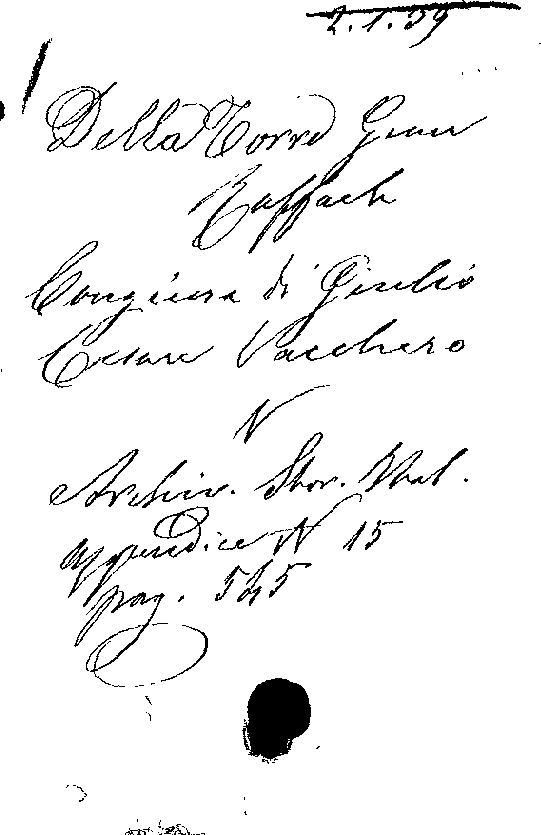 2.1.39
Della Torre Gian
Raffaele
Congiura di Giulio
Cesare Vacchero
V
Archiv. Stor. Ital.
appendice N 15
pag. 545